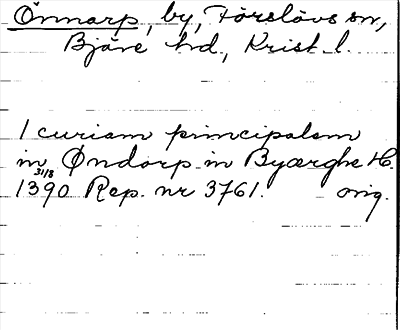 Önnarp, by, Förslövs sn,
Bjäre hd, Krist. l.
1 curiam principalem
in Øndorp in Byærghe H.
31/8
1390 Rep. nr 3761. orig.